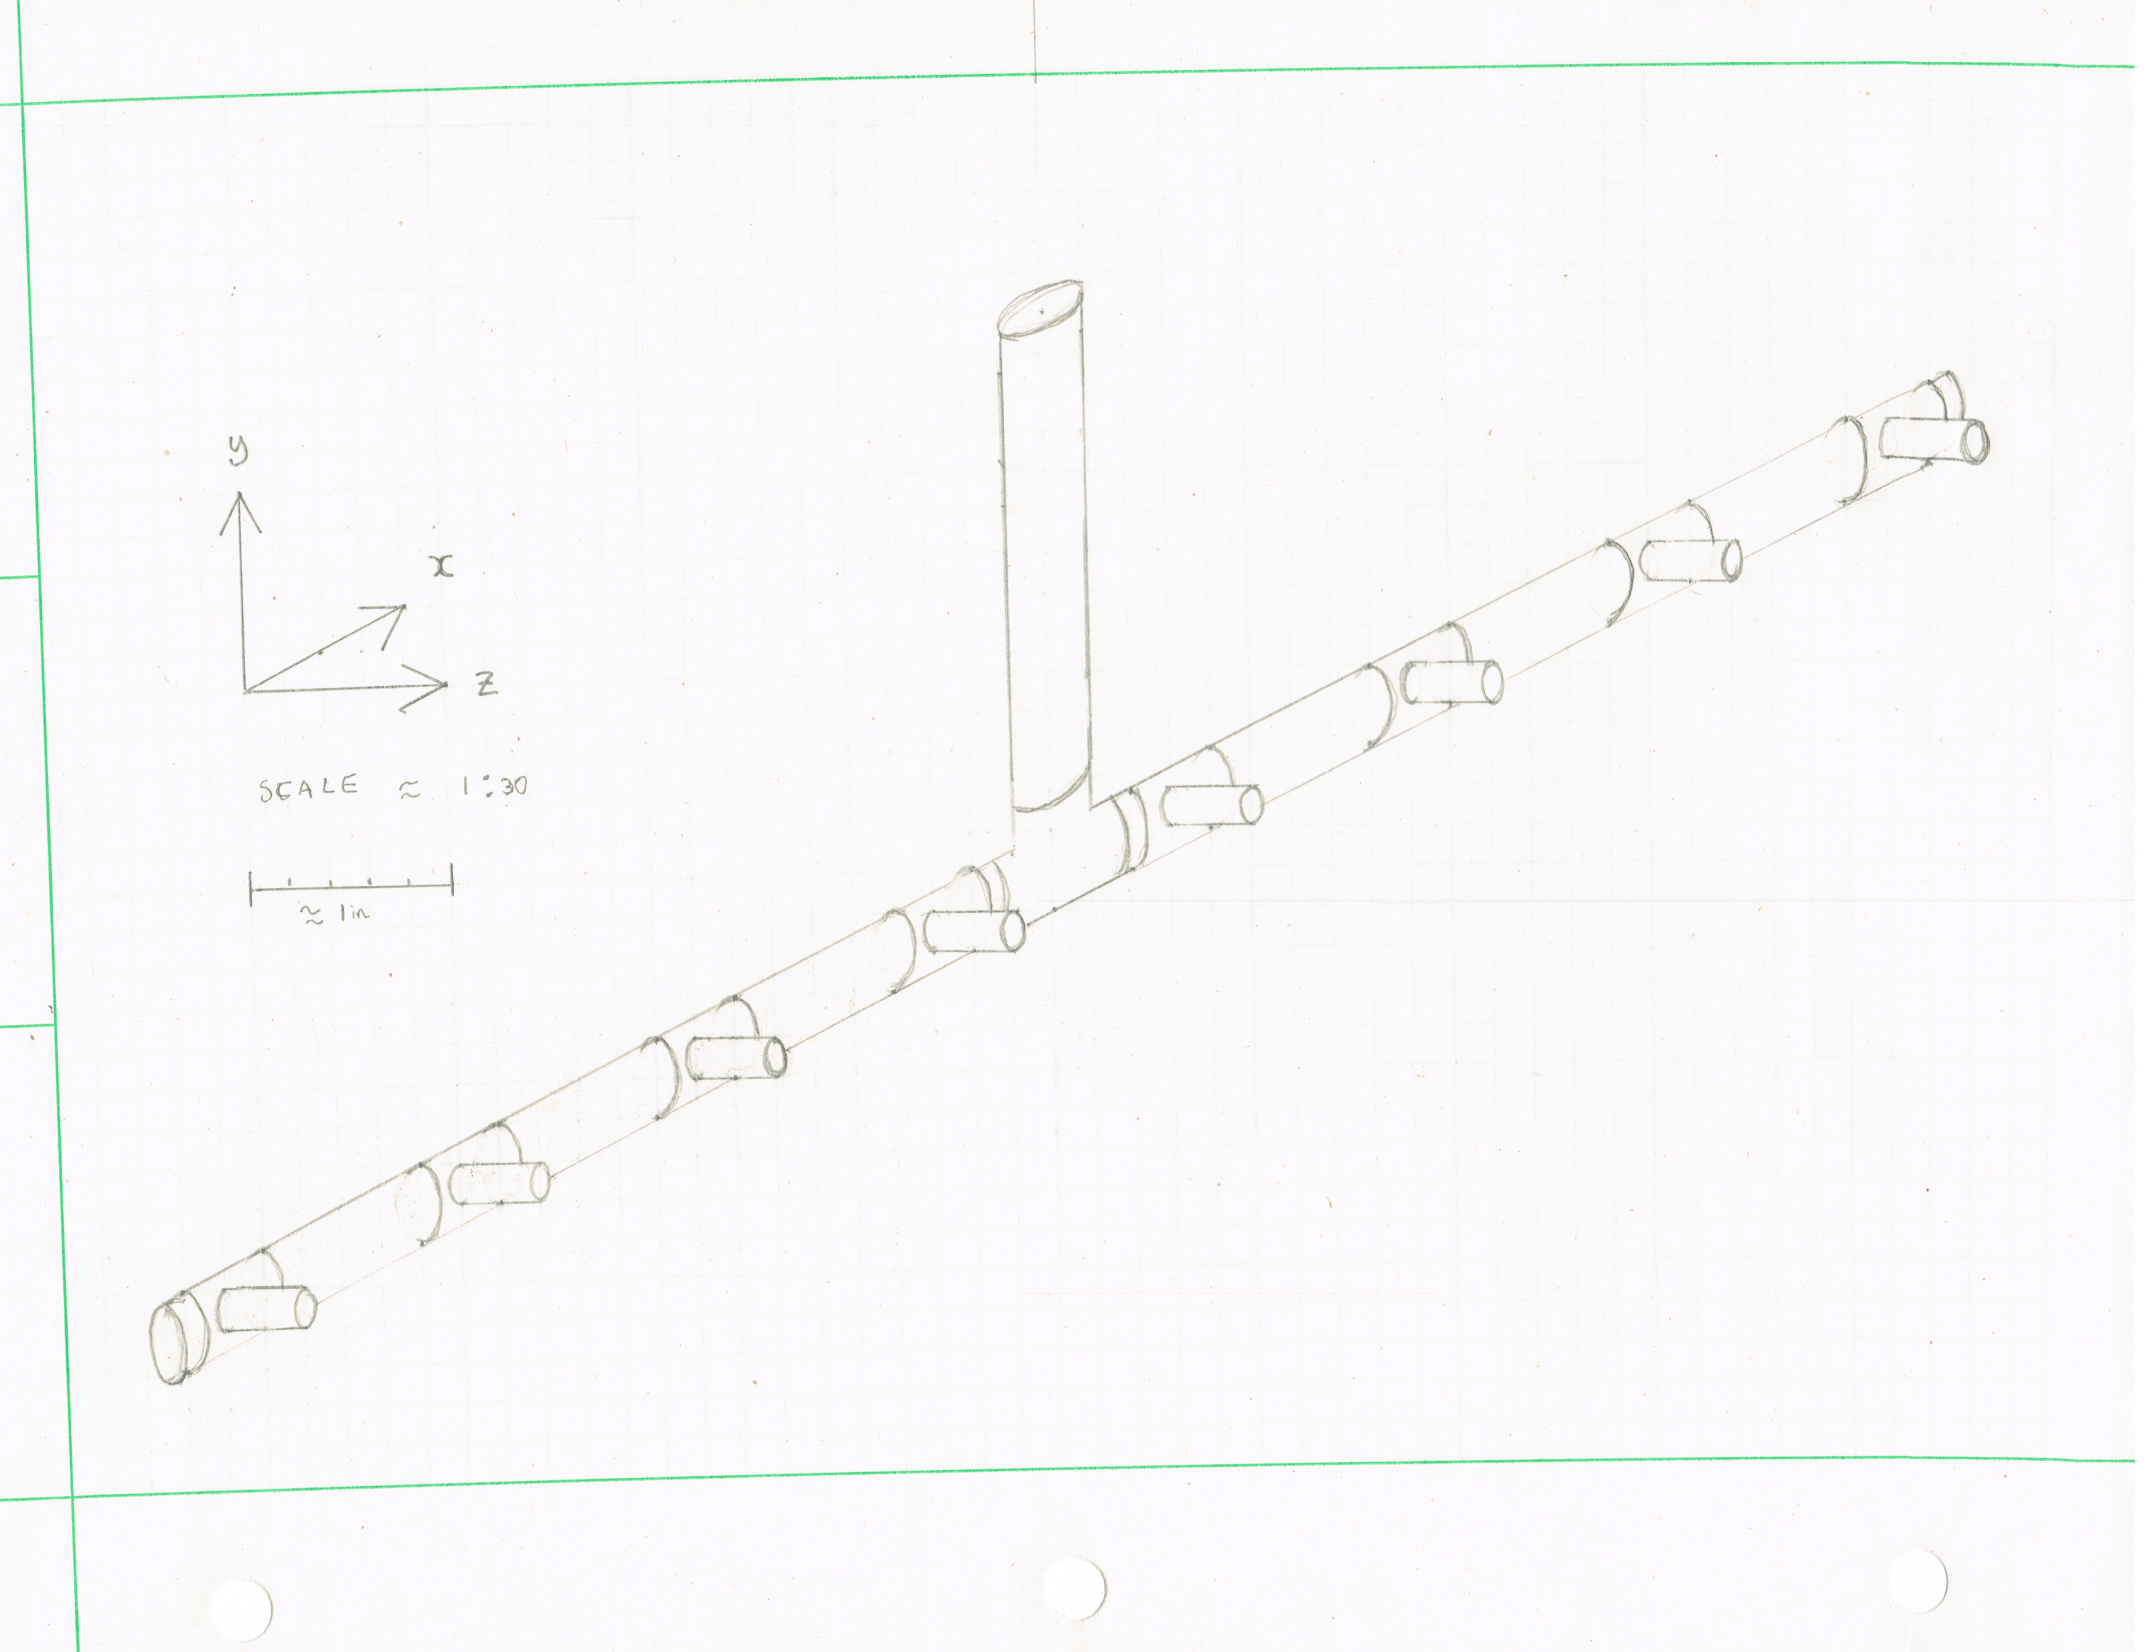 y
x
z
SCALE ≈ 1:30
≈ 1in